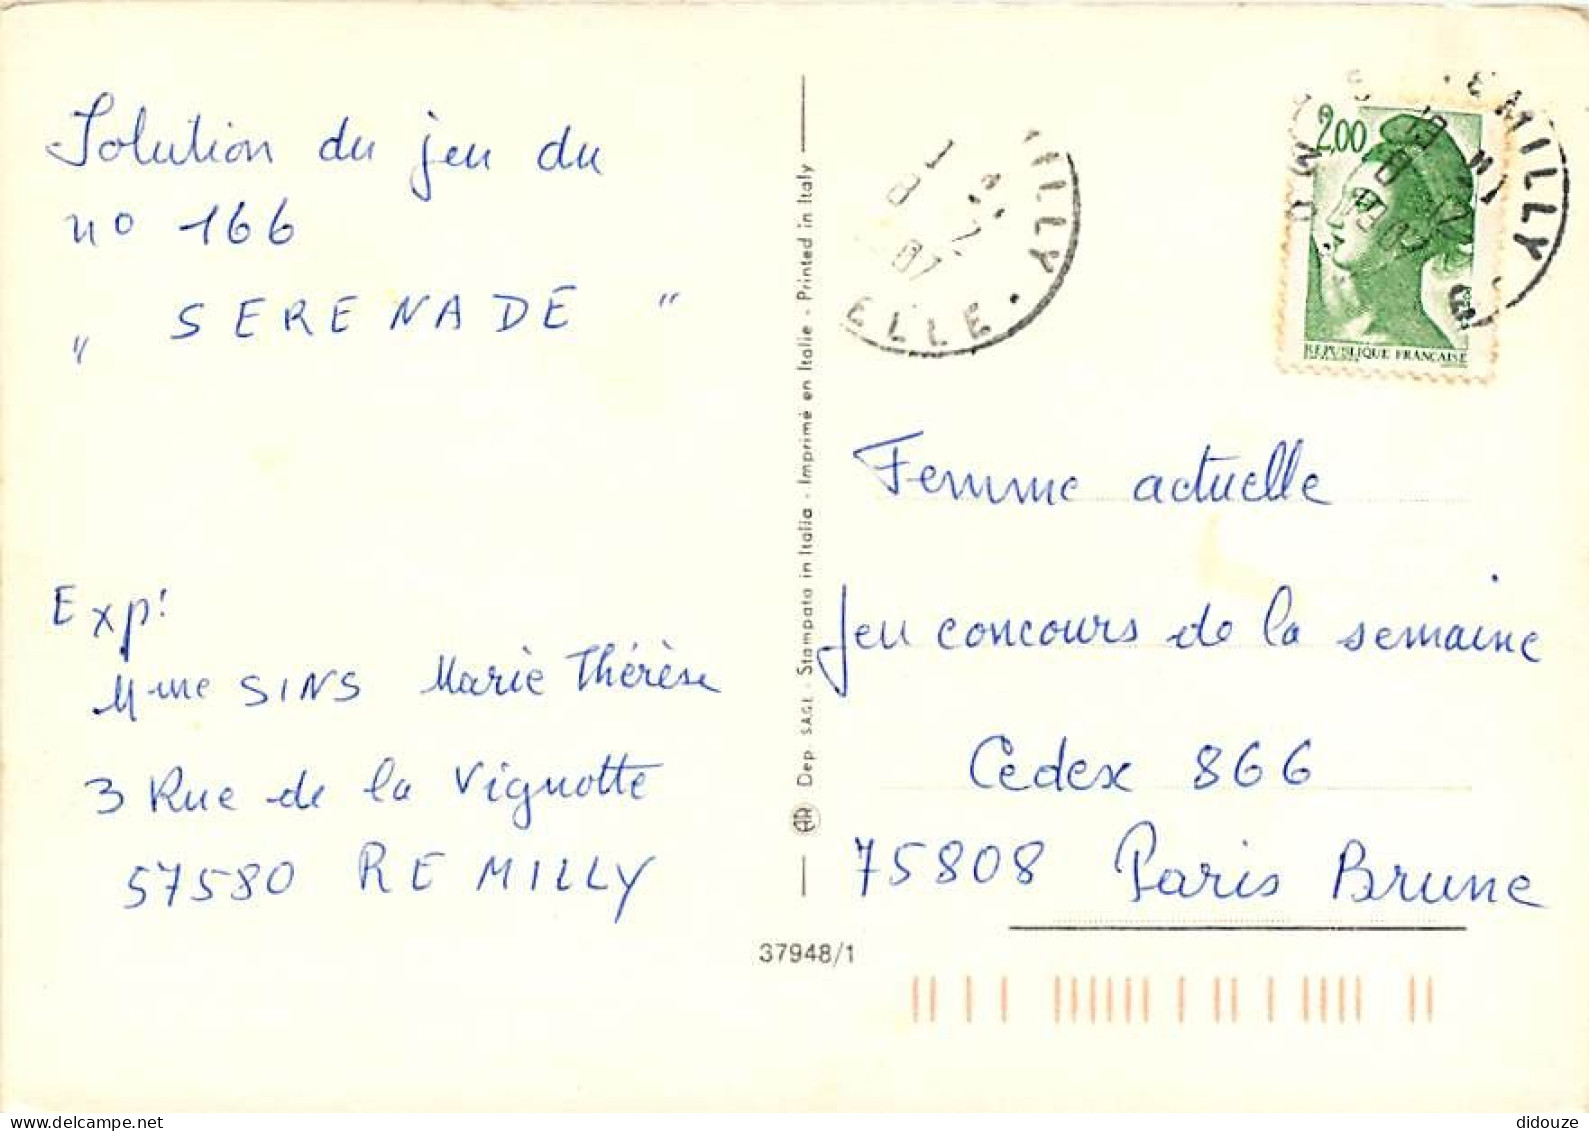 Solution du jeu du
no 166
" SERENADE "
Exp:
Mme SINS Marie Thérèse
3 Rue de la Vignotte
57580 REMILLY
Dep SAGL - Stampato in Italia - Imprimé en Italie - Printed in Italy
AR
37948/1
ILLY
ELLE
87
2,00
REPUBLIQUE FRANÇAISE
EMILLY
Femme actuelle
Jeu concours de la semaine
Cedex 866
75808 Paris Brune
didouze